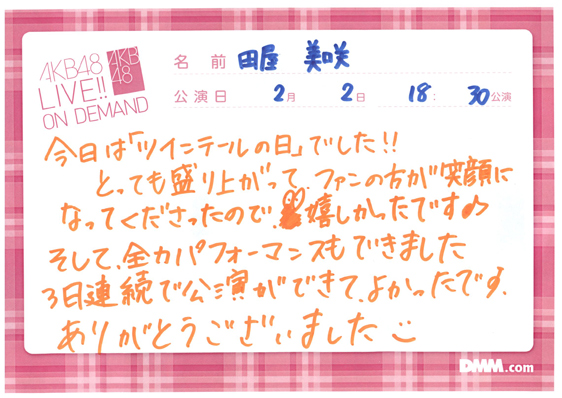 AKB48
LIVE!!
ON DEMAND
AKB
48
名 前 田屋 美咲
公演日 2月 2日 18: 30公演
今日は「ツインテールの日」でした!!
とっても盛り上がって、ファンの方が笑顔に
なってくださったので、嬉しかったです♪
そして、全力パフォーマンスもできました
3日連続で公演ができて、よかったです。
ありがとうございました
DMM.com